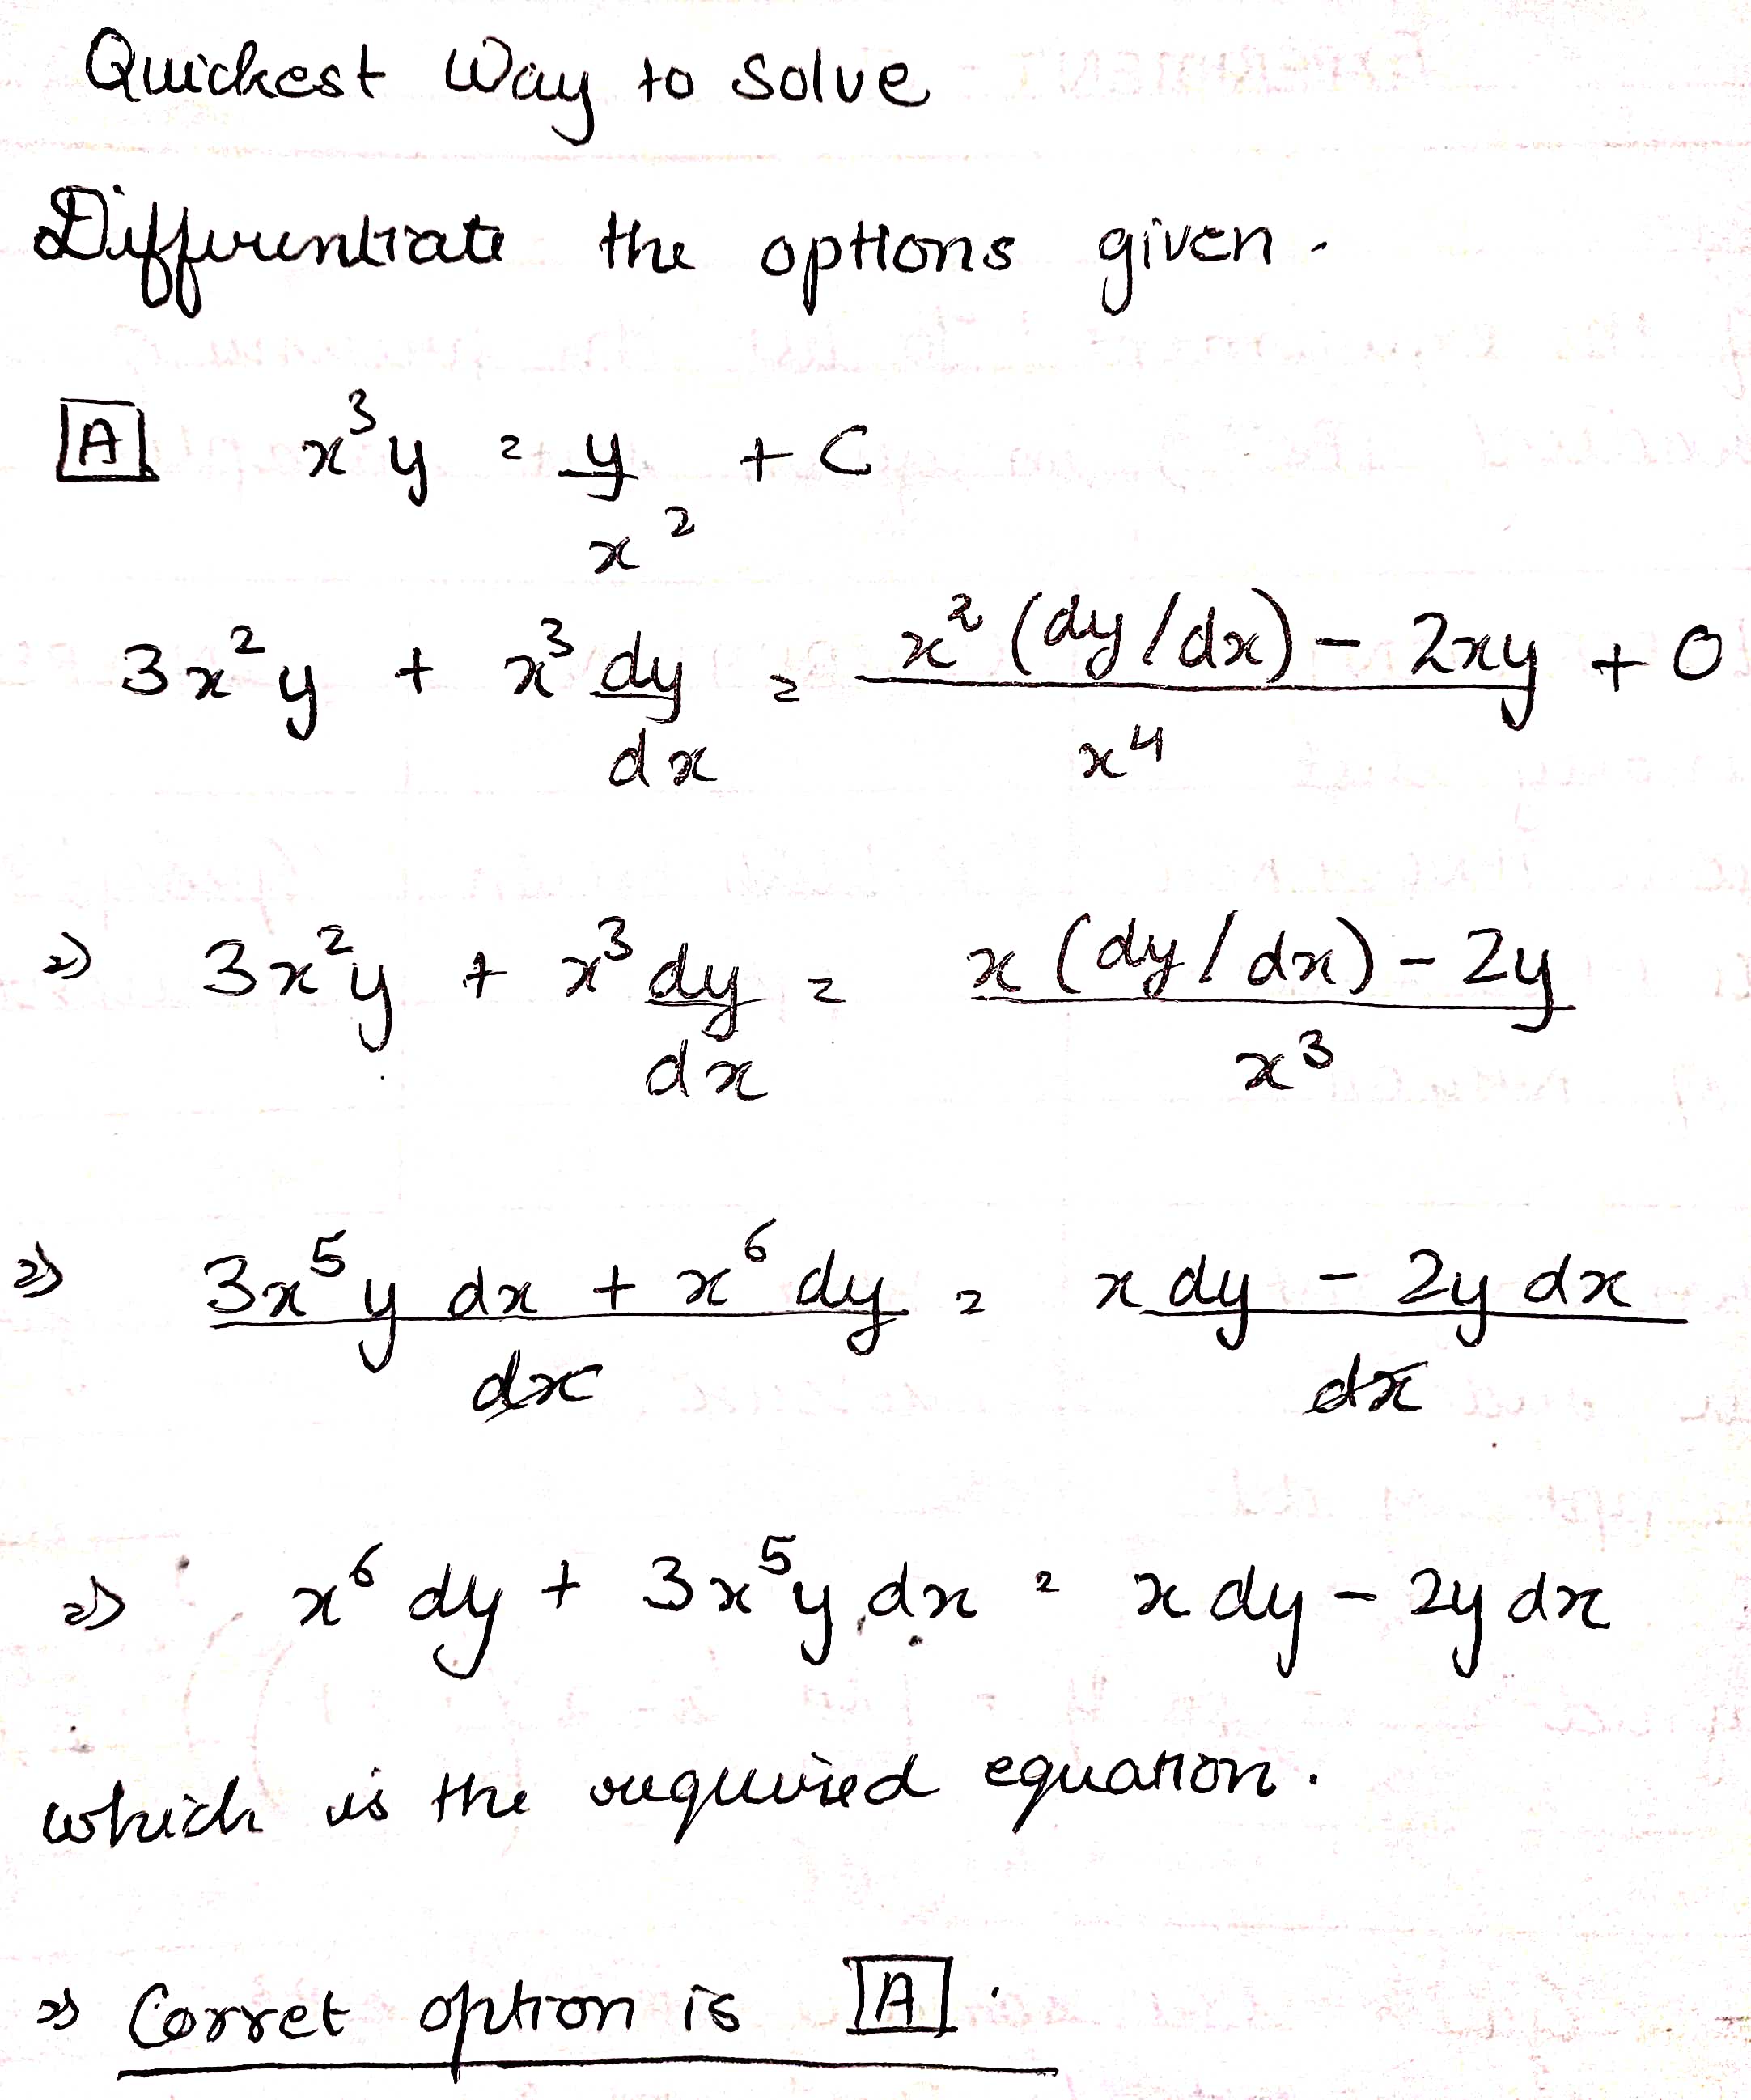 Quickest Way to solve
Differentiate the options given.
A x³y = y/x² + C
3x²y + x³ dy/dx = (x² (dy/dx) - 2xy)/x⁴ + 0
⇒ 3x²y + x³ dy/dx = (x (dy/dx) - 2y)/x³
⇒ (3x⁵y dx + x⁶ dy)/dx = (x dy - 2y dx)/dx
⇒ x⁶ dy + 3x⁵y dx = x dy - 2y dx
which is the required equation.
⇒ Corret option is A.